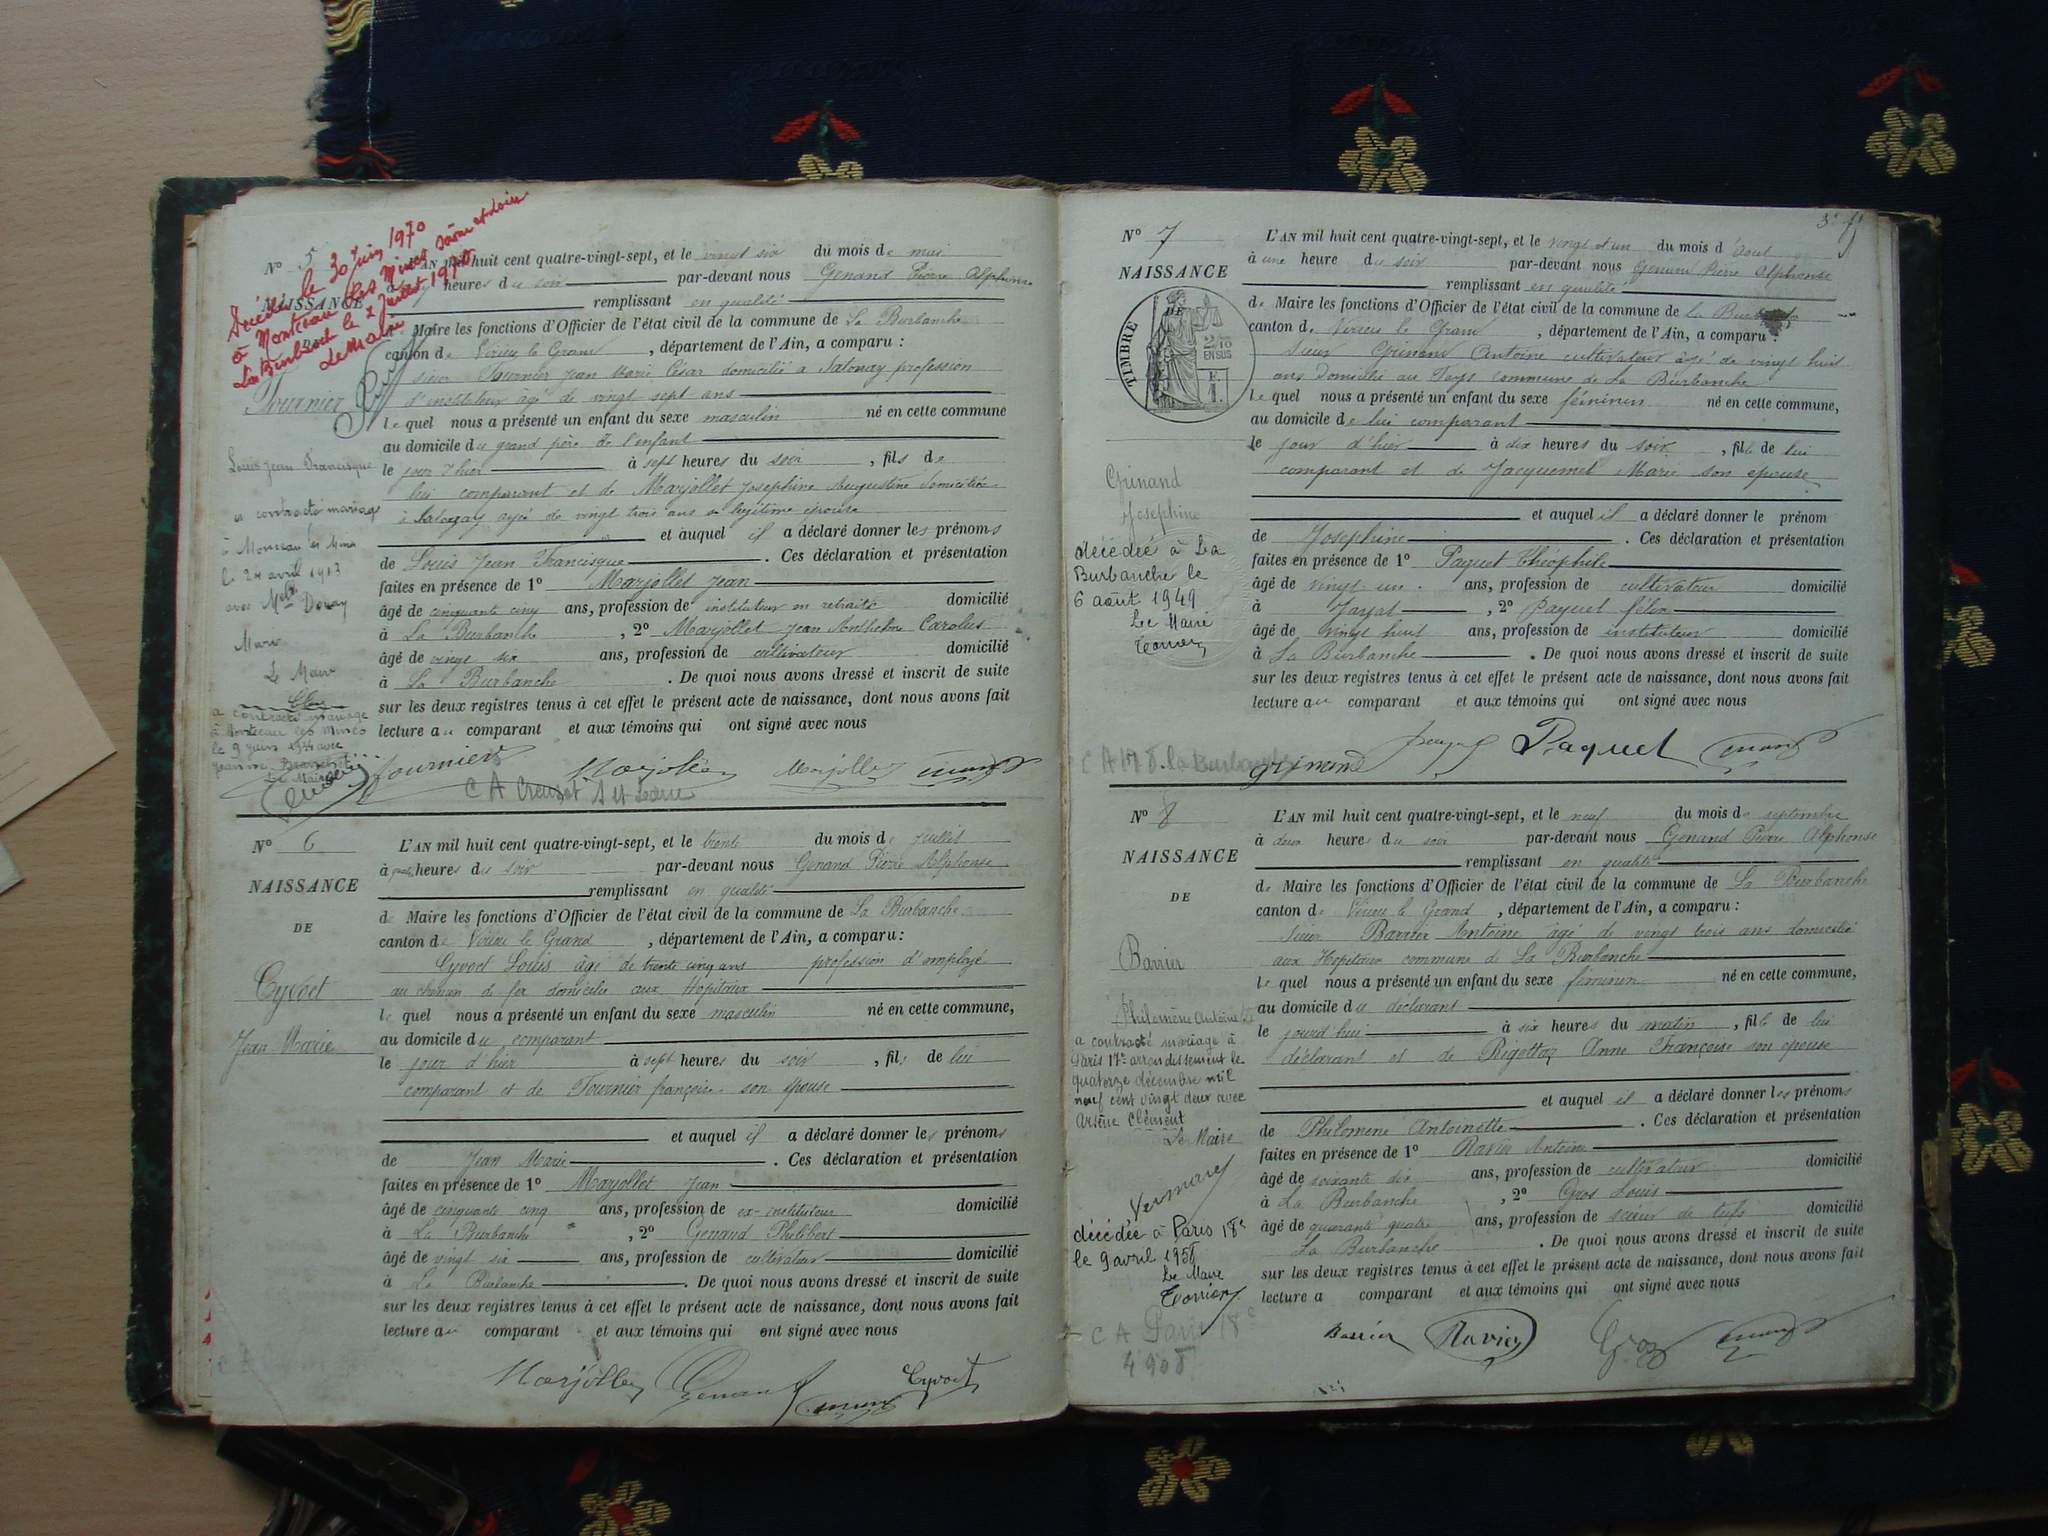 Décédé le 30 Juin 1970
à Montceau les Mines Saône et Loire
La Burbanche le 2 Juillet 1970
Le Maire
N° 5
L'AN mil huit cent quatre-vingt-sept, et le vingt six du mois de mai
heures du soir par-devant nous Genand Pierre Alphonse
NAISSANCE
remplissant en qualité
de Maire les fonctions d'Officier de l'état civil de la commune de La Burbanche
canton de Virieu le Grand, département de l'Ain, a comparu :
sieur Fournier Jean Marie César domicilié à Satonay profession
d'instituteur âgé de vingt sept ans
Fournier
le quel nous a présenté un enfant du sexe masculin né en cette commune
au domicile du grand père de l'enfant
Louis Jean Francisque
le jour d'hier à sept heures du soir, fils de
lui comparant et de Marjollet Josephine Augustine domiciliée
à Satonay agée de vingt trois ans sa légitime épouse
a contracté mariage
à Monceau les Mines
le 24 avril 1913
avec Melle Douay
Marie
Le Maire
et auquel il a déclaré donner les prénoms
de Louis Jean Francisque. Ces déclaration et présentation
faites en présence de 1° Marjollet Jean
âgé de cinquante cinq ans, profession de instituteur en retraite domicilié
à La Burbanche, 2° Marjollet Jean Anthelme Carolus
âgé de vingt six ans, profession de cultivateur domicilié
à La Burbanche. De quoi nous avons dressé et inscrit de suite
sur les deux registres tenus à cet effet le présent acte de naissance, dont nous avons fait
lecture au comparant et aux témoins qui ont signé avec nous
a contracté mariage
à Montceau les Mines
le 9 juin 1934 avec
Jeanne Blanchet
Le Maire
Fournier Marjollet Marjollet
C A Creuzot S et Loire
N° 6
L'AN mil huit cent quatre-vingt-sept, et le trente du mois de juillet
à heures du soir par-devant nous Genand Pierre Alphonse
NAISSANCE
remplissant en qualité
DE
de Maire les fonctions d'Officier de l'état civil de la commune de La Burbanche
canton de Virieu le Grand, département de l'Ain, a comparu :
Cyvoct Louis âgé de trente cinq ans profession d'employé
au chemin de fer domicilié aux Hopitaux
Cyvoct
Jean Marie
le quel nous a présenté un enfant du sexe masculin né en cette commune,
au domicile du comparant
le jour d'hier à sept heures du soir, fils de lui
comparant et de Fournier françoise son épouse
et auquel il a déclaré donner les prénoms
de Jean Marie. Ces déclaration et présentation
faites en présence de 1° Marjollet Jean
âgé de cinquante cinq ans, profession de ex-instituteur domicilié
à La Burbanche, 2° Genand Philibert
âgé de vingt six ans, profession de cultivateur domicilié
à La Burbanche. De quoi nous avons dressé et inscrit de suite
sur les deux registres tenus à cet effet le présent acte de naissance, dont nous avons fait
lecture au comparant et aux témoins qui ont signé avec nous
Marjollet Genand Cyvoct
N° 7
L'AN mil huit cent quatre-vingt-sept, et le vingt et un du mois d'août
à une heure du soir par-devant nous Genand Pierre Alphonse
NAISSANCE
remplissant en qualité
DE
TIMBRE
2/10
EN SUS
de Maire les fonctions d'Officier de l'état civil de la commune de La Burbanche
canton de Virieu le Grand, département de l'Ain, a comparu :
sieur Grinand Antoine cultivateur âgé de vingt huit
ans domicilié au Tarps commune de La Burbanche
le quel nous a présenté un enfant du sexe féminin né en cette commune,
au domicile de lui comparant
le jour d'hier à dix heures du soir, fille de lui
comparant et de Jacquemet Marie son épouse
Grinand
Josephine
et auquel il a déclaré donner le prénom
de Josephine. Ces déclaration et présentation
décédée à La
Burbanche le
6 août 1949
Le Maire
faites en présence de 1° Paquet Théophile
âgé de vingt un ans, profession de cultivateur domicilié
à, 2° Paquet félix
âgé de vingt huit ans, profession de instituteur domicilié
à La Burbanche. De quoi nous avons dressé et inscrit de suite
sur les deux registres tenus à cet effet le présent acte de naissance, dont nous avons fait
lecture au comparant et aux témoins qui ont signé avec nous
la Burbanche
Grinand Paquet
N° 8
L'AN mil huit cent quatre-vingt-sept, et le neuf du mois de septembre
à deux heures du soir par-devant nous Genand Pierre Alphonse
NAISSANCE
remplissant en qualité
DE
de Maire les fonctions d'Officier de l'état civil de la commune de La Burbanche
canton de Virieu le Grand, département de l'Ain, a comparu :
sieur Barrier Antoine âgé de vingt trois ans domicilié
aux Hopitaux commune de La Burbanche
Barrier
le quel nous a présenté un enfant du sexe féminin né en cette commune,
au domicile du déclarant
Philomène Antoinette
le jourd'hui à six heures du matin, fille de lui
déclarant et de Rigottaz Anne Françoise son épouse
a contracté mariage à
Paris 17e arrondissement le
quatorze décembre mil
neuf cent vingt deux avec
Arsène Clément
Le Maire
et auquel il a déclaré donner les prénoms
de Philomène Antoinette. Ces déclaration et présentation
faites en présence de 1° Ravier Antoine
âgé de soixante dix ans, profession de cultivateur domicilié
à La Burbanche, 2° Gros Louis
âgé de quarante quatre ans, profession de scieur de tufs domicilié
La Burbanche. De quoi nous avons dressé et inscrit de suite
sur les deux registres tenus à cet effet le présent acte de naissance, dont nous avons fait
lecture a comparant et aux témoins qui ont signé avec nous
décédée à Paris 18e
le 9 avril 1958
Le Maire
C A Paris 18e
Barrier Ravier Gros